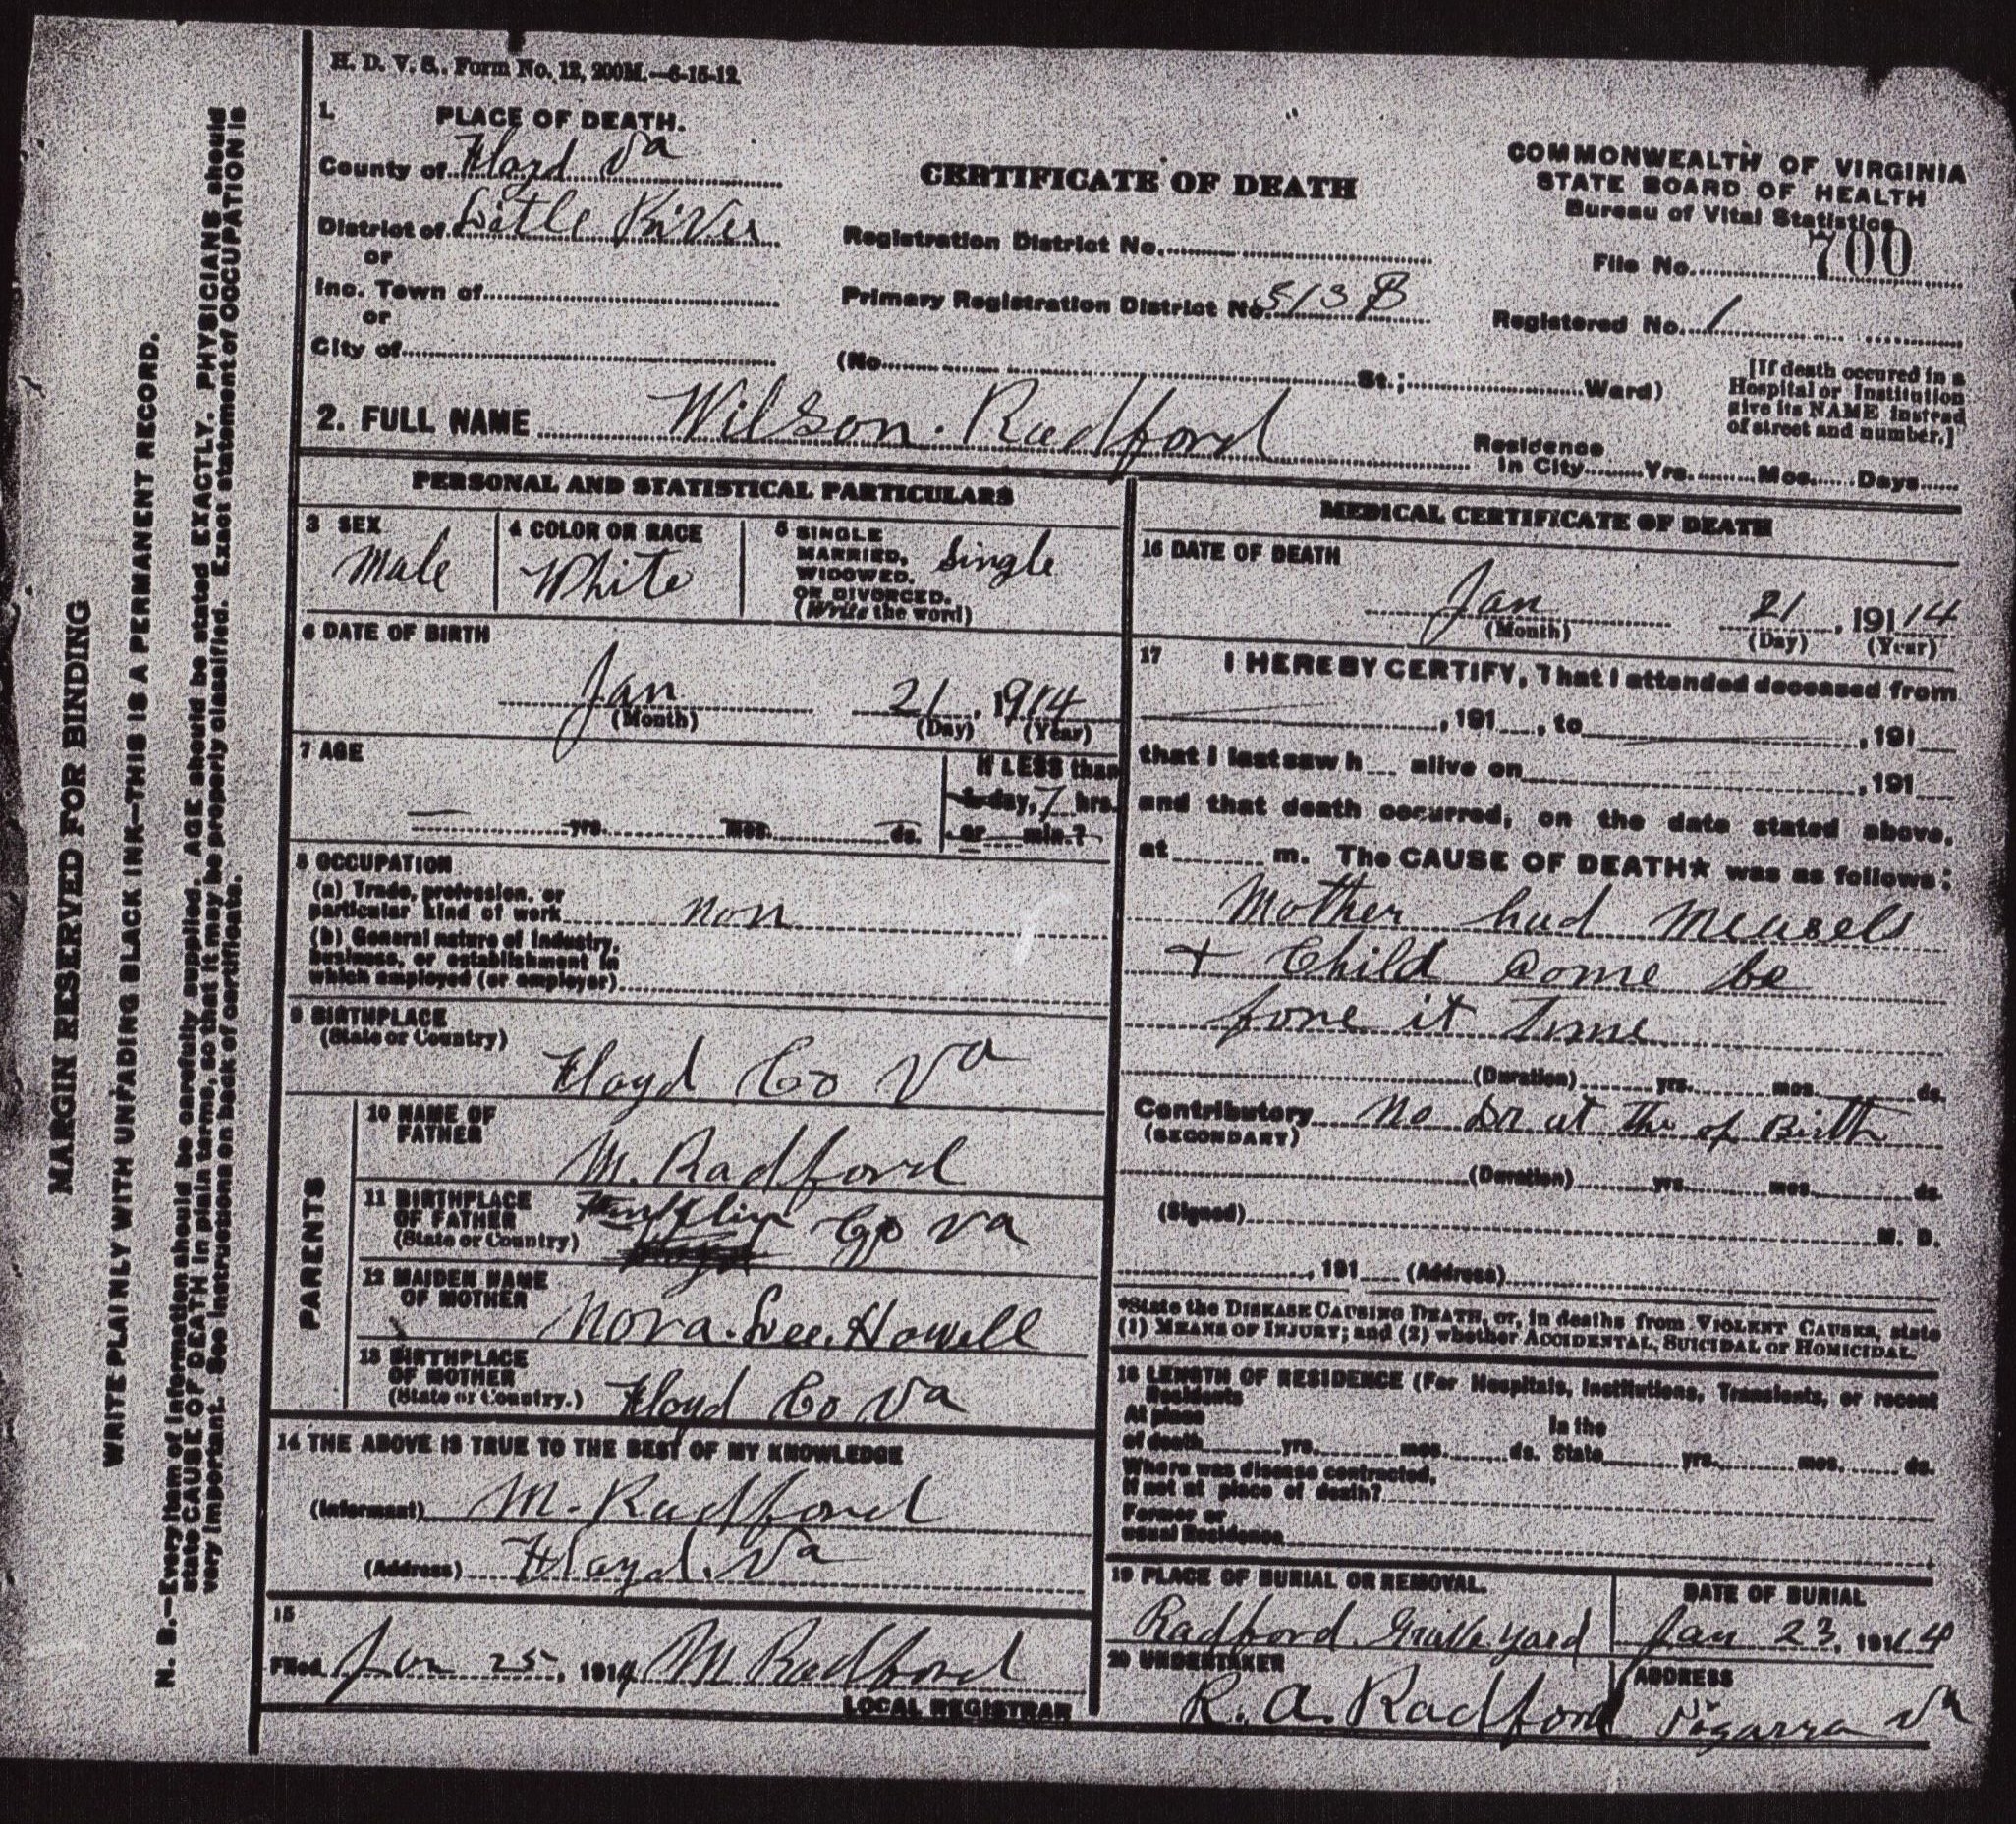 H. D. V. S. Form No. 12, 200M.—6-15-12
1. PLACE OF DEATH.
County of Floyd Va
District of Litle River
or
Inc. Town of
or
City of
CERTIFICATE OF DEATH
Registration District No.
Primary Registration District No. 513 B
(No. St.; Ward)
COMMONWEALTH OF VIRGINIA
STATE BOARD OF HEALTH
Bureau of Vital Statistics
File No. 700
Registered No. 1
[If death occured in a
Hospital or Institution
give its NAME instead
of street and number.]
2. FULL NAME Wilson. Radford
Residence
In City Yrs. Mos. Days
PERSONAL AND STATISTICAL PARTICULARS
3 SEX
Male
4 COLOR OR RACE
White
5 SINGLE
MARRIED,
WIDOWED,
OR DIVORCED.
(Write the word)
Single
6 DATE OF BIRTH
Jan 21, 1914
(Month) (Day) (Year)
7 AGE
yrs. mos. ds.
If LESS than
1 day, 7 hrs.
or min.?
8 OCCUPATION
(a) Trade, profession, or
particular kind of work non
(b) General nature of Industry,
business, or establishment in
which employed (or employer)
9 BIRTHPLACE
(State or Country)
Floyd Co Va
PARENTS
10 NAME OF
FATHER
M. Radford
11 BIRTHPLACE
OF FATHER
(State or Country)
Co Va
12 MAIDEN NAME
OF MOTHER
Nora. Lee. Howell
13 BIRTHPLACE
OF MOTHER
(State or Country.)
Floyd Co Va
14 THE ABOVE IS TRUE TO THE BEST OF MY KNOWLEDGE
(Informant) M. Radford
(Address) Floyd. Va
15
Filed Jan 25, 1914 M Radford
LOCAL REGISTRAR
MEDICAL CERTIFICATE OF DEATH
16 DATE OF DEATH
Jan 21, 19114
(Month) (Day) (Year)
17 I HEREBY CERTIFY, That I attended deceased from
, 191 , to , 191
that I last saw h alive on , 191
and that death occurred, on the date stated above,
at m. The CAUSE OF DEATH★ was as follows:
Mother had Measels
+ Child Come be
fore it Time
(Duration) yrs. mos. ds.
Contributory No Dr at the of Birth
(SECONDARY)
(Duration) yrs. mos. ds.
(Signed) M. D.
, 191 (Address)
*State the DISEASE CAUSING DEATH, or, in deaths from VIOLENT CAUSES, state
(1) MEANS OF INJURY; and (2) whether ACCIDENTAL, SUICIDAL or HOMICIDAL.
18 LENGTH OF RESIDENCE (For Hospitals, Institutions, Transients, or recent
Residents
At place
of death yrs. mos. ds.
In the
State yrs. mos. ds.
Where was disease contracted,
if not at place of death?
Former or
usual Residence
19 PLACE OF BURIAL OR REMOVAL.
Radford Grave yard
DATE OF BURIAL
Jan 23, 19114
20 UNDERTAKER
R. A. Radford
ADDRESS
Va
MARGIN RESERVED FOR BINDING
WRITE PLAINLY WITH UNFADING BLACK INK—THIS IS A PERMANENT RECORD.
N. B.—Every item of information should be carefully supplied. AGE should be stated EXACTLY. PHYSICIANS should
state CAUSE OF DEATH in plain terms, so that it may be properly classified. Exact statement of OCCUPATION is
very important. See instructions on back of certificate.